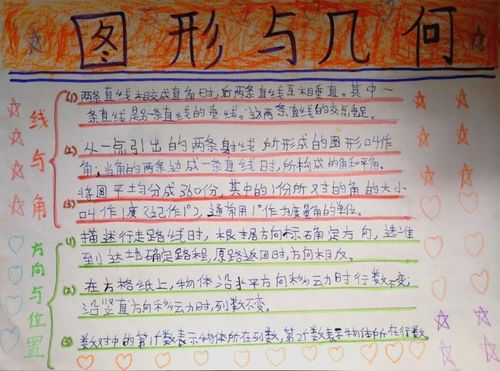 图形与几何
线与角
(1) 两条直线相交成直角时,两条直线互相垂直。其中一
条直线是另一条直线的垂线。这两条直线的交点垂足。
(2) 从一点引出的两条射线所形成的图形叫作
角;当角的两条边成一条直线时,所构成的角和平角。
(3) 将圆平均分成360份,其中的1份所对的角的大小
叫作1度(记作1°),通常用1°作为度量角的单位。
方向与位置
(1) 描述行走路线时,根据方向标确定方向,选准
到达地确定路程,原路返回时,方向相反。
(2) 在方格纸上,物体沿水平方向移动时行数不变;
沿竖直方向移动时,列数不变。
(3) 数对中的第1个数表示物体所在列数,第2个数表示物体所在行数。